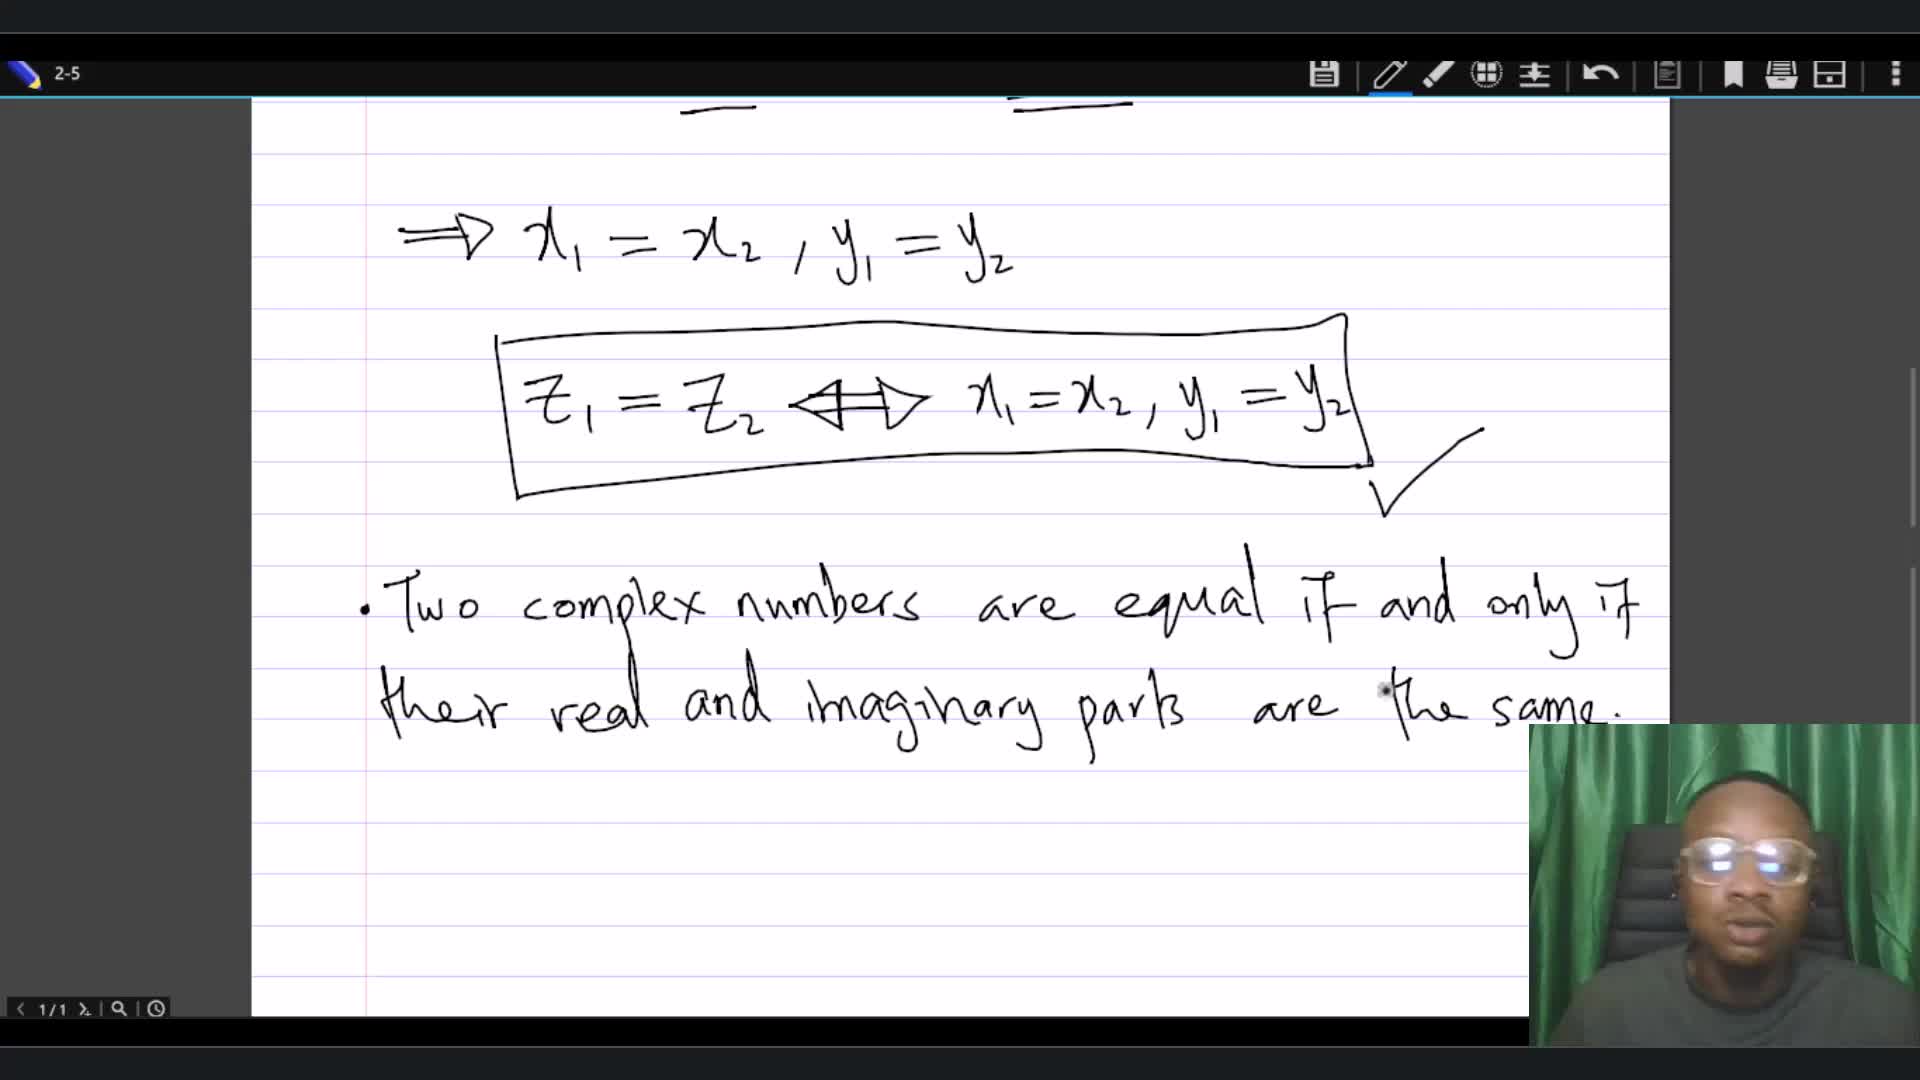 2-5
⇒ x₁ = x₂ , y₁ = y₂
Z₁ = Z₂ ⇔ x₁ = x₂ , y₁ = y₂
• Two complex numbers are equal if and only if
their real and imaginary parts are the same.
1/1